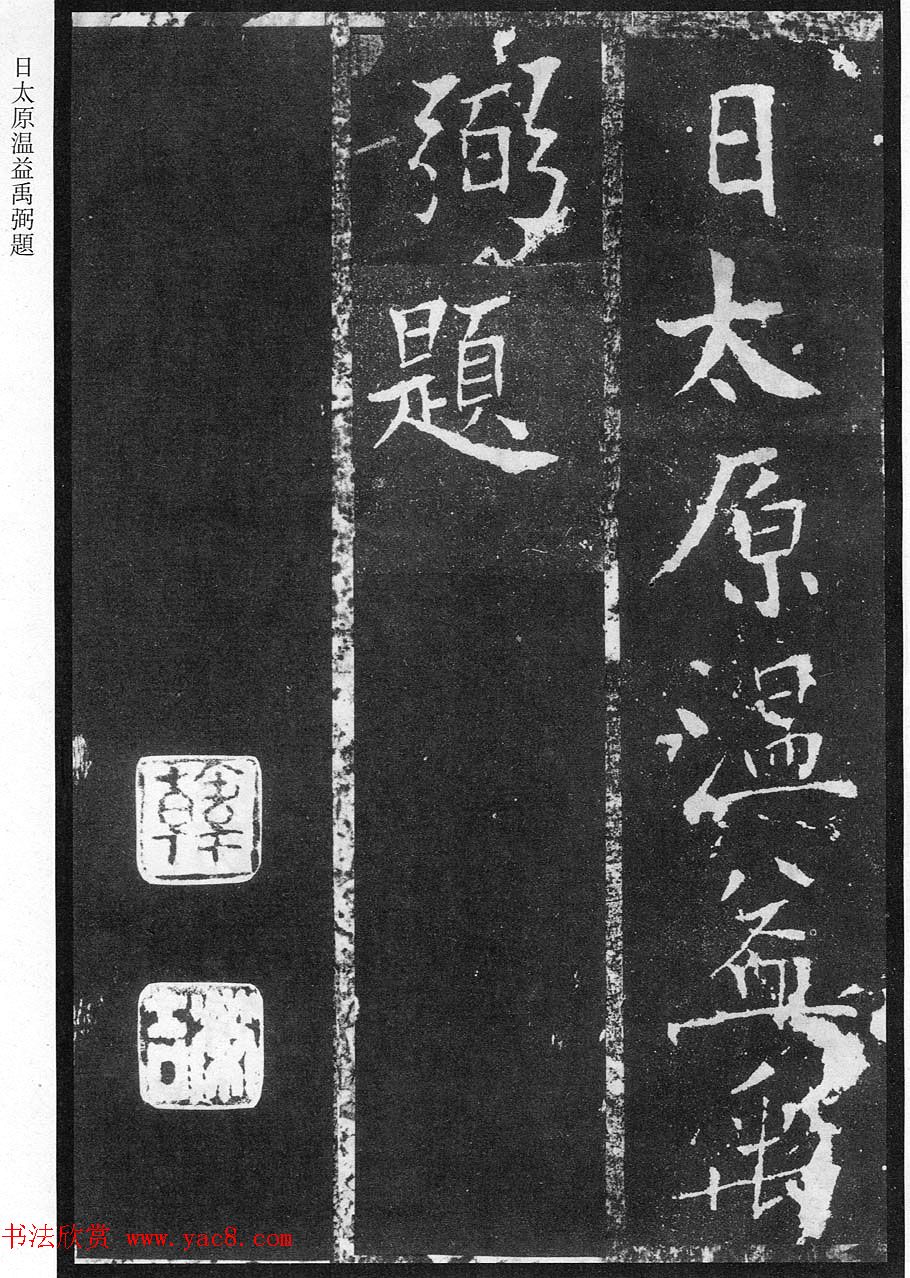 日太原温益禹
弼
題
日太原温益禹弼題
书法欣赏 www.yac8.com